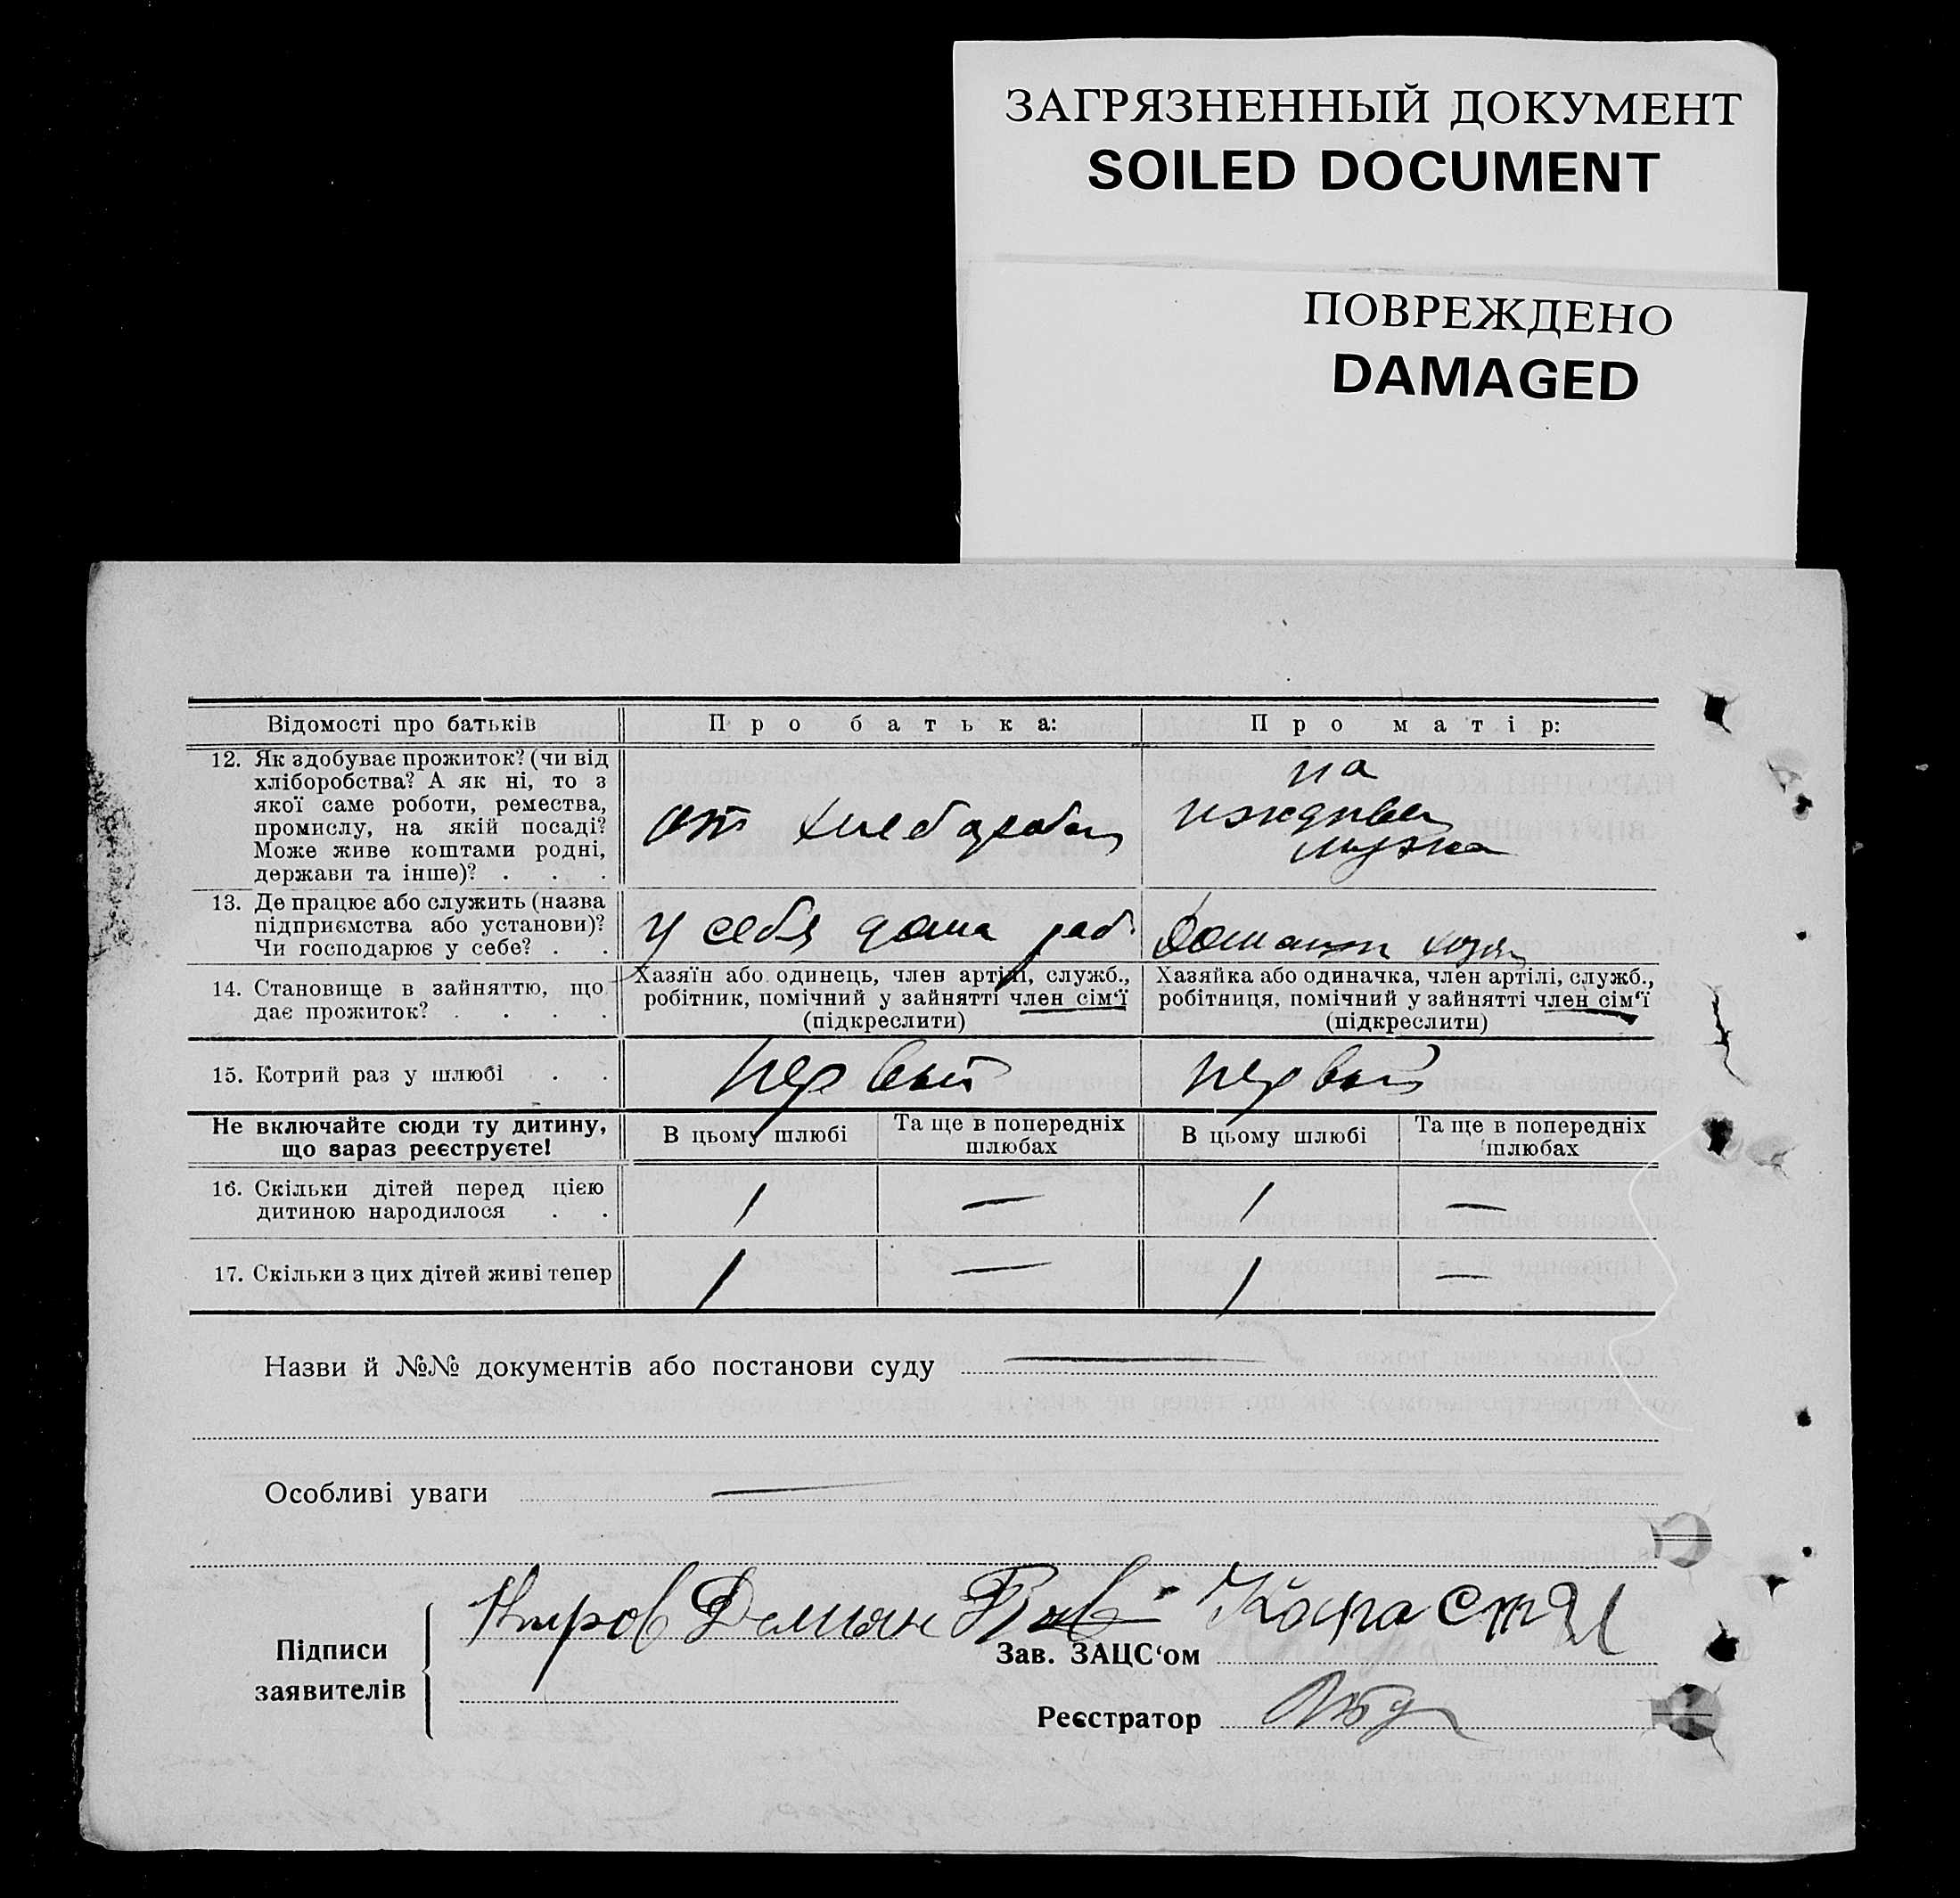 ЗАГРЯЗНЕННЫЙ ДОКУМЕНТ
SOILED DOCUMENT
ПОВРЕЖДЕНО
DAMAGED
Відомості про батьків
Про батька:
Про матір:
12. Як здобуває прожиток? (чи від
хліборобства? А як ні, то з
якої саме роботи, ремества,
промислу, на якій посаді?
Може живе коштами родні,
держави та інше)? . . .
от
на
мужа
13. Де працює або служить (назва
підприємства або установи)?
Чи господарює у себе? . .
у себя дома раб.
14. Становище в зайняттю, що
дає прожиток? . . . .
Хазяїн або одинець, член артілі, служб.,
робітник, помічний у зайнятті член сім'ї
(підкреслити)
Хазяйка або одиначка, член артілі, служб.,
робітниця, помічний у зайнятті член сім'ї
(підкреслити)
15. Котрий раз у шлюбі . .
первый
первый
Не включайте сюди ту дитину,
що зараз реєструєте!
В цьому шлюбі
Та ще в попередніх
шлюбах
В цьому шлюбі
Та ще в попередніх
шлюбах
16. Скільки дітей перед цією
дитиною народилося . .
1 — 1 —
17. Скільки з цих дітей живі тепер
1 — 1 —
Назви й №№ документів або постанови суду —
Особливі уваги —
Підписи
заявителів
Демиян
Зав. ЗАЦС'ом
Реєстратор